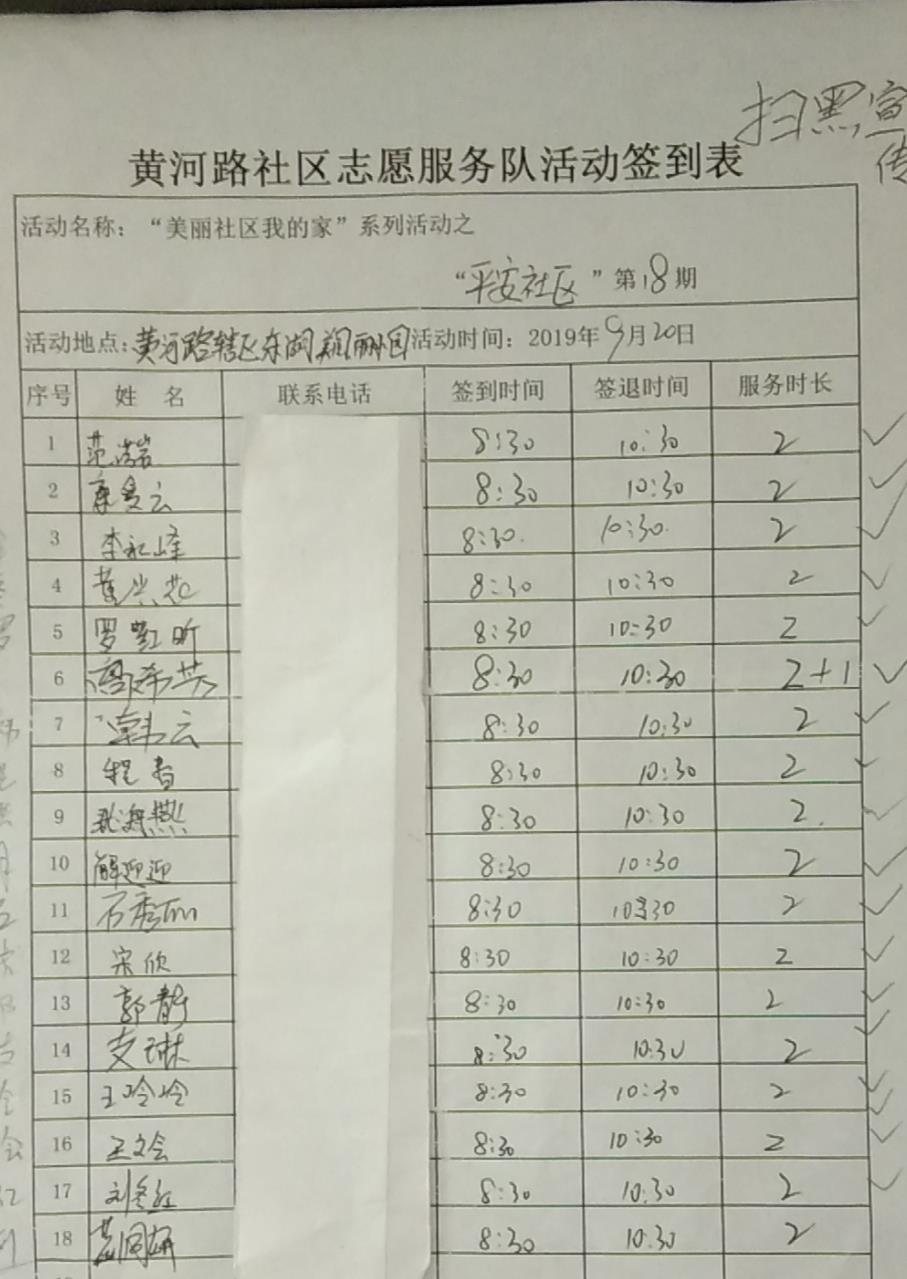 扫黑宣
传
黄河路社区志愿服务队活动签到表
活动名称：“美丽社区我的家”系列活动之
“平安社区”第18期
活动地点：黄河路辖区东湖 丽园 活动时间：2019年9月20日
序号 姓 名 联系电话 签到时间 签退时间 服务时长
1 8:30 10:30 2
2 康爱云 8:30 10:30 2
3 李 峰 8:30. 10:30. 2
4 黄兴花 8:30 10:30 2
5 罗 昕 8:30 10:30 2
6 8:30 10:30 2+1
7 韩云 8:30 10:30 2
8 程 8:30 10:30 2
9 8:30 10:30 2.
10 解迎迎 8:30 10:30 2
11 石秀丽 8:30 10:30 2
12 宋欣 8:30 10:30 2
13 郭静 8:30 10:30 2
14 支琳 8:30 10:30 2
15 王吟吟 8:30 10:30 2
16 王文会 8:30 10:30 2
17 刘冬红 8:30 10:30 2
18 8:30 10:30 2